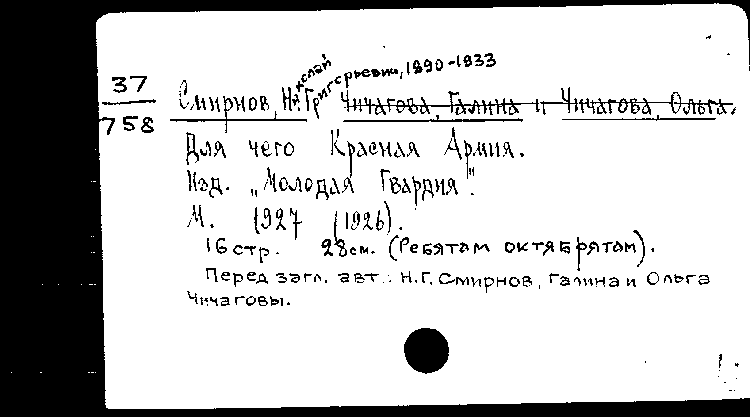 37
758
Николай Григорьевич, 1890-1933
Смирнов, Н. Гр. Чичагова, Галина и Чичагова, Ольга.
Для чего Красная Армия.
Изд. „Молодая Гвардия".
М. 1927 (1926).
16 стр. 28 см. (Ребятам октябрятам).
Перед загл. авт.: Н.Г. Смирнов, Галина и Ольга
Чичаговы.